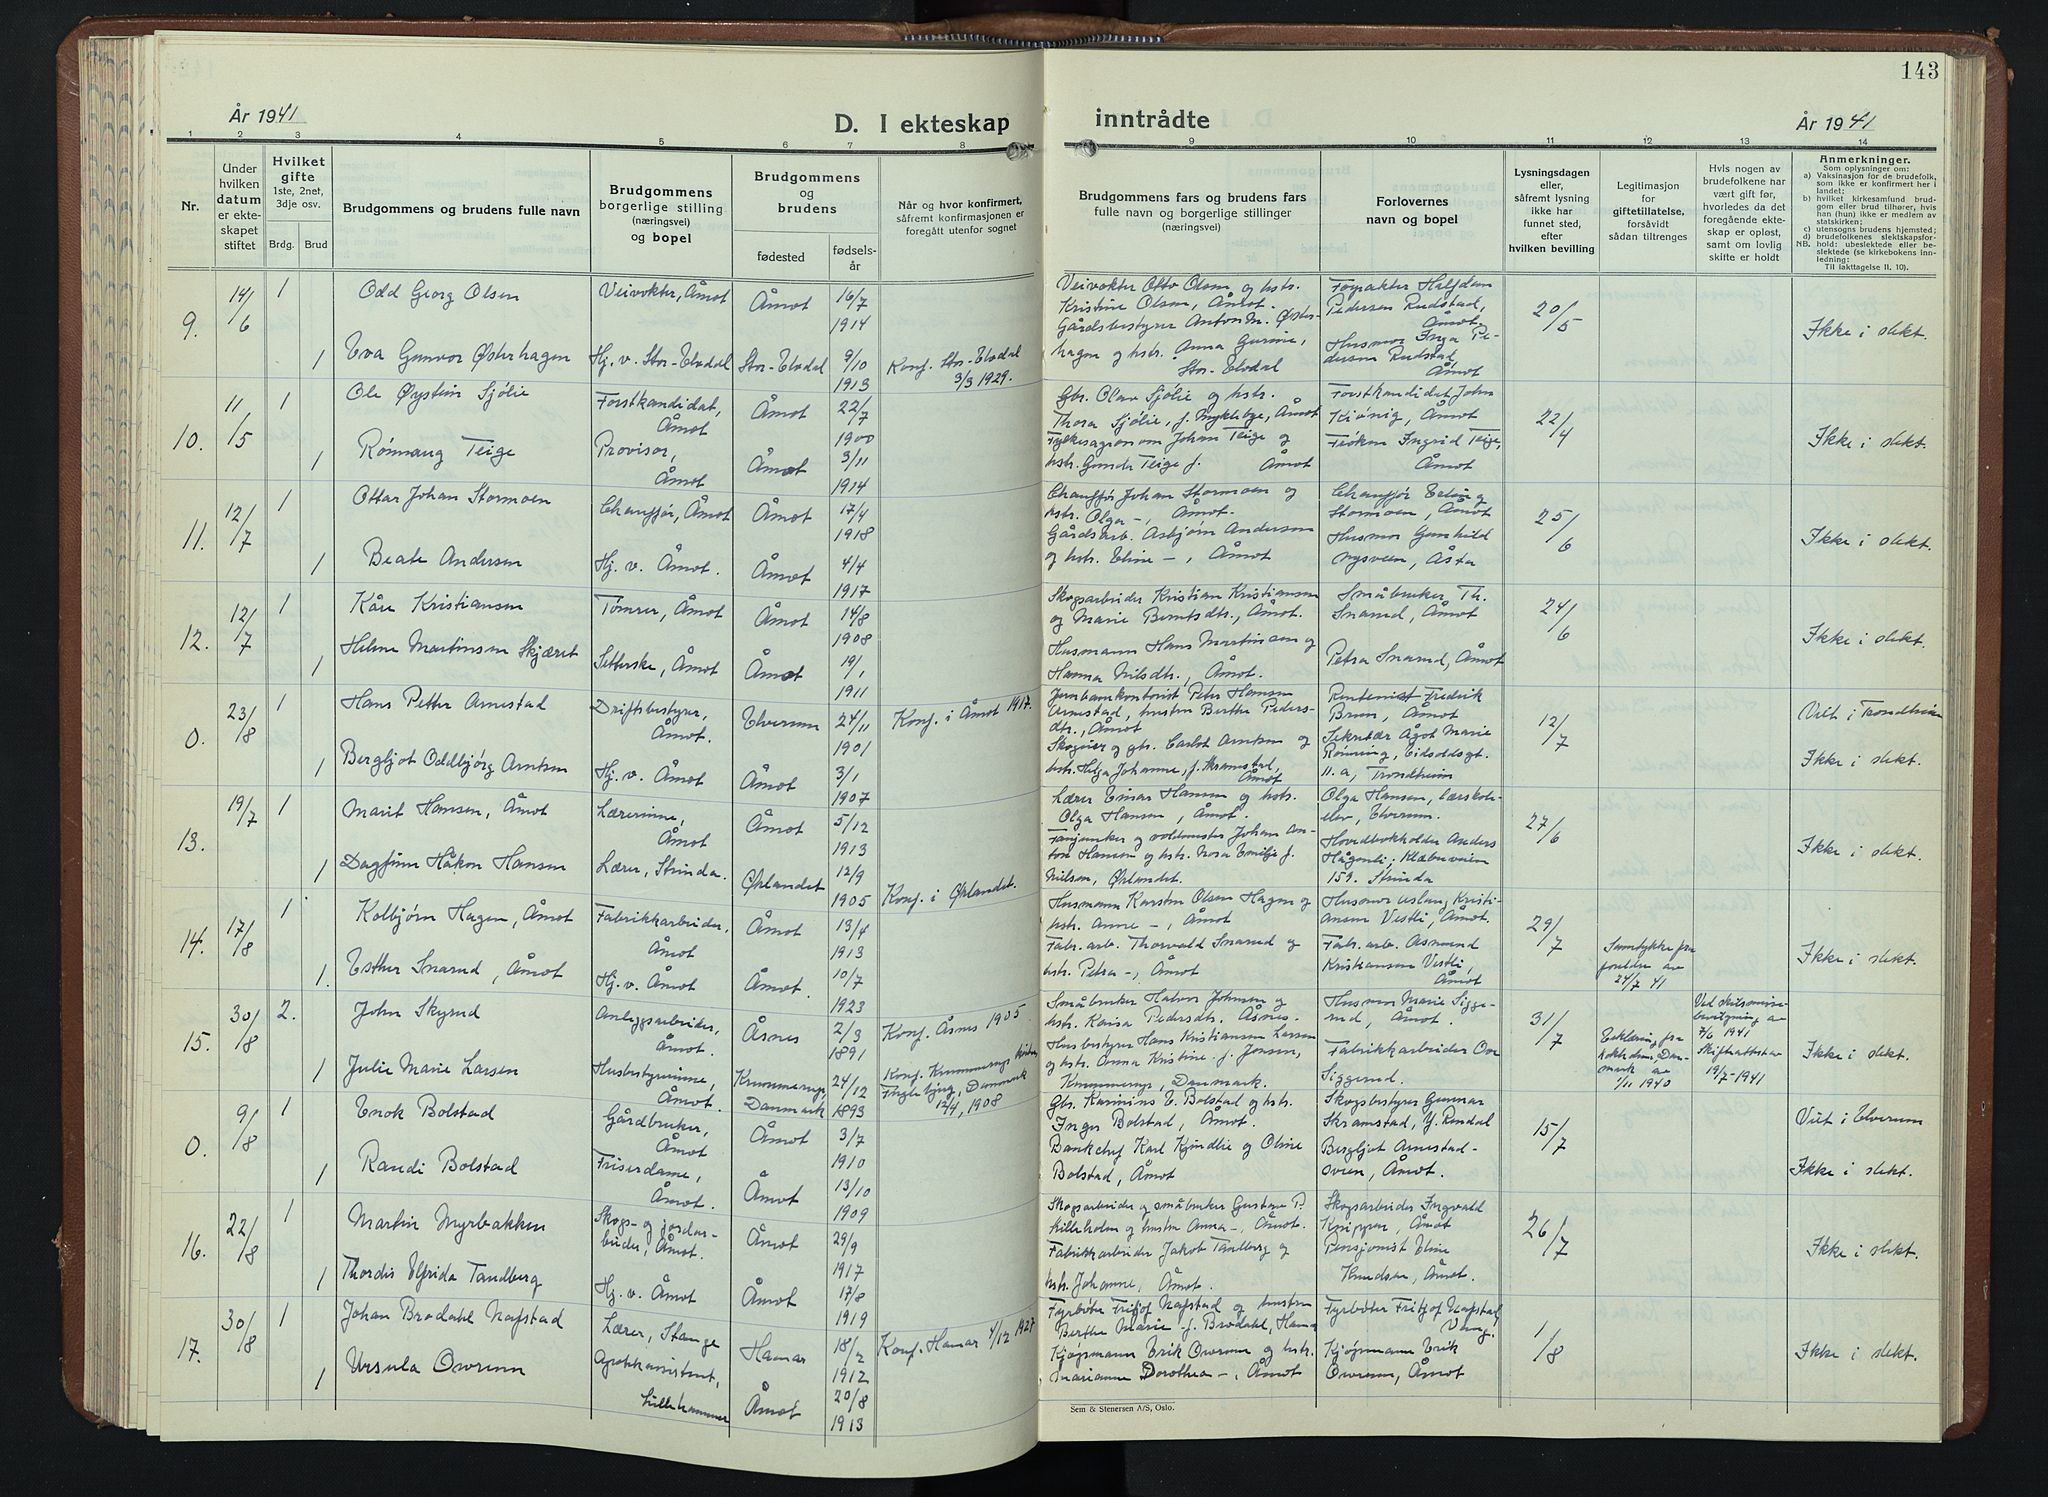 143
År 1941
D. I ekteskap
inntrådte
År 1941
1 2 3 4 5 6 7 8 9 10 11 12 13 14
Nr.
Under hvilken datum er ekteskapet stiftet
Hvilket gifte
1ste, 2net, 3dje osv.
Brdg. Brud
Brudgommens og brudens fulle navn
Brudgommens borgerlige stilling (næringsvei) og bopel
Brudgommens og brudens
fødested
fødselsår
Når og hvor konfirmert, såfremt konfirmasjonen er foregått utenfor sognet
Brudgommens fars og brudens fars fulle navn og borgerlige stillinger (næringsvei)
Forlovernes navn og bopel
Lysningsdagen eller, såfremt lysning ikke har funnet sted, efter hvilken bevilling
Legitimasjon for giftetillatelse, forsåvidt sådan tiltrenges
Hvis nogen av brudefolkene har vært gift før, hvorledes da det foregående ekteskap er opløst, samt om lovlig skifte er holdt
Anmerkninger.
Som oplysninger om:
a) Vaksinasjon for de brudefolk, som ikke er konfirmert her i landet;
b) hvilket kirkesamfund brudgom eller brud tilhører, hvis han (hun) ikke er medlem av statskirken;
c) utensogns brudens hjemsted;
d) brudefolkenes slektskapsforhold: ubeslektede eller beslektede (se kirkebokens innledning:
NB.
Til iakttagelse II. 10).
9. 14/6 1 Odd Georg Olsen Veivokter, Åmot Åmot 16/7 1914
Veivokter Otto Olsen og hstr. Kristine Olsen, Åmot.
Halfdan Pedersen Rudstad, Åmot
20/5
1 Eva Gunvor Østerhagen Hj. v. Stor-Elvdal Stor-Elvdal 9/10 1913 Konf. Stor-Elvdal 3/3 1929.
Gårdsbestyrer Anton M. Østerhagen og hstr. Anna Gurine, Stor-Elvdal
Husmor Inga Pedersen Rudstad, Åmot
Ikke i slekt.
10. 11/5 1 Ole Øystein Sjølie Forstkandidat, Åmot Åmot 22/7 1900
Gbr. Olav Sjølie og hstr. Thora Sjølie, f. Myklebye, Åmot
Forstkandidat John Kiønig, Åmot
22/4
1 Rønnaug Teige Provisor, Åmot Åmot 3/11 1914
Fylkesagronom Johan Teige og hstr. Gunda Teige f. Åmot
Frøken Ingrid Teige, Åmot
Ikke i slekt.
11. 12/7 1 Ottar Johan Stormoen Chauffør, Åmot Åmot 17/4 1918
Chauffør Johan Stormoen og hstr. Olga -, Åmot.
Stormoen, Åmot
25/6
1 Beate Andersen Hj. v. Åmot. Åmot 4/4 1917
Gårdsarb. Asbjørn Andersen og hstr. Eline -, Åmot
Husmor Gunhild Nysveen, Åsta
Ikke i slekt.
12. 12/7 1 Kåre Kristiansen Tømrer, Åmot Åmot 14/8 1908
Skogsarbeider Kristian Kristiansen og Marie Berntsdtr., Åmot.
Småbruker Th. Snarud, Åmot
24/6
1 Helene Martinsen Skjæret Åmot Åmot 19/1 1911
Husmann Hans Martinsen og Hanna Nilsdtr., Åmot.
Petra Snarud, Åmot
Ikke i slekt.
0. 23/8 1 Hans Petter Arnestad Driftsbestyrer, Åmot. Elverum 24/11 1901 Konf. i Åmot 1917.
Jernbanekontorist Peter Hansen Ernestad, hustru Berthe Pedersdtr., Åmot
Rentenist Fredrik Brun, Åmot
12/7
Viet i Trondheim
1 Bergljot Oddbjørg Arntsen Hj. v. Åmot Åmot 3/1 1907
Skogeier og gbr. Carlot Arntsen og hstr. Helga Johanne, f. Skramstad, Åmot
Sekretær Ågot Marie Rønning, Eidsvoldsgt. 11. a, Trondheim
Ikke i slekt.
13. 19/7 1 Marit Hansen, Åmot Lærerinne, Åmot Åmot 5/12 1913
Lærer Einar Hansen og hstr. Olga Hansen, Åmot.
Olga Hansen, lærskoleelev, Elverum.
27/6
1 Dagfinn Håkon Hansen Lærer, Strinda. Ørlandet 12/9 1905 Konf. i Ørlandet.
Fanejunker og voldmester Johan Anton Hansen og hstr. Nora Emilje f. Nilsen, Ørlandet.
Hovedbokholder Anders Hågenli, Klæbuveien 159. Strinda
Ikke i slekt.
14. 17/8 1 Kolbjørn Hagen, Åmot Fabrikkarbeider, Åmot Åmot 13/4 1913
Husmann Karsten Olsen Hagen og hstr. Anne -, Åmot
Husmor Aslaug Kristiansen Vestli, Åmot.
29/7
1. Esther Snarud, Åmot Hj. v. Åmot Åmot. 10/7 1923
Fabr. arb. Thorvald Snarud og hstr. Petra -, Åmot
Fabr. arb. Asmund Kristiansen Vestli, Åmot
Samtykke fra foreldre av 24/7 41
Ikke i slekt.
15. 30/8 2. John Skyrud Anleggsarbeider, Åmot. Åsnes 2/3 1891 Konf. Åsnes 1905.
Småbruker Halvor Johnsen og hstr. Karisa Pedersdtr. Åsnes.
Husmor Marie Siggerud, Åmot.
31/7
Ved skilsmissebevilgning av 7/6 1941
Skifteattest av 19/7-1941
1 Julie Marie Larsen Husbestyrerinne, Åmot. Krummerup, Danmark 24/12 1893 Konf. Krummerup kirke, Danmark 12/4, 1908
Husbestyrer Hans Kristiansen Larsen og hstr. Anna Kristine f. Jensen, Krummerup, Danmark.
Fabrikkarbeider Ove Siggerud.
Erklæring fra Danmark av 1/11 1940
Ikke i slekt.
0. 9/8 1 Enok Bolstad Gårdbruker, Åmot Åmot 3/7 1910
Gbr. Karinius E. Bolstad og hstr. Inger Bolstad, Åmot.
Skogsbestyrer Gunnar Skramstad, Y. Rendal
15/7
Viet i Elverum
1 Randi Bolstad Friserdame, Åmot. Åmot 13/10 1909
Bankchef Karl Kjndlie og Oline Bolstad, Åmot
Bergljot Arnestadsveen, Åmot.
Ikke i slekt.
16. 22/8 1 Martin Myrbakken Skogs- og jordarbeider, Åmot. Åmot 29/9 1917
Skogsarbeider og småbruker Gustav P. Lilleholen og hustru Anna -, Åmot.
Skogsarbeider Ingvald Knipper, Åmot
26/7
1 Thordis Elfrida Tandberg Hj. v. Åmot Åmot 17/8 1919
Fabrikkarbeider Jakob Tandberg og hstr. Johanne, Åmot.
Pensjonist Eline Knudsen, Åmot.
Ikke i slekt.
17. 30/8 1 Johan Brodahl Nafstad Lærer, Stange Hamar 18/2 1912 Konf. Hamar 4/12 1927
Fyrbøter Fritjof Nafstad og hustru Berthe Marie f. Brodahl, Hamar
Fyrbøter Fritjof Nafstad, Vang.
1/8
1 Ursula Overenn Apotekassistent, Lillehammer Åmot 20/8 1913
Kjøpmann Erik Overenn og hstr. Marianne Dorothea -, Åmot
Kjøpmann Erik Overenn, Åmot
Ikke i slekt.
Sem & Stenersen A/S, Oslo.